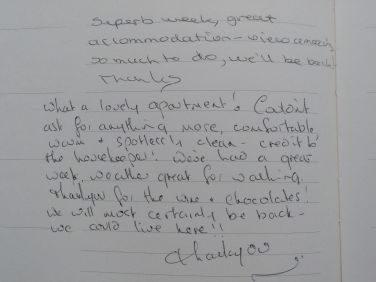 Superb week, great
accommodation - views amazing
so much to do, we'll be back
Thanks
What a lovely apartment! Couldn't
ask for anything more, comfortable
warm + spotlessly clean - credit to
the housekeeper! We've had a great
week, weather great for walking.
thankyou for the wine + chocolates!
We will most certainly be back -
we could live here!!
thankyou